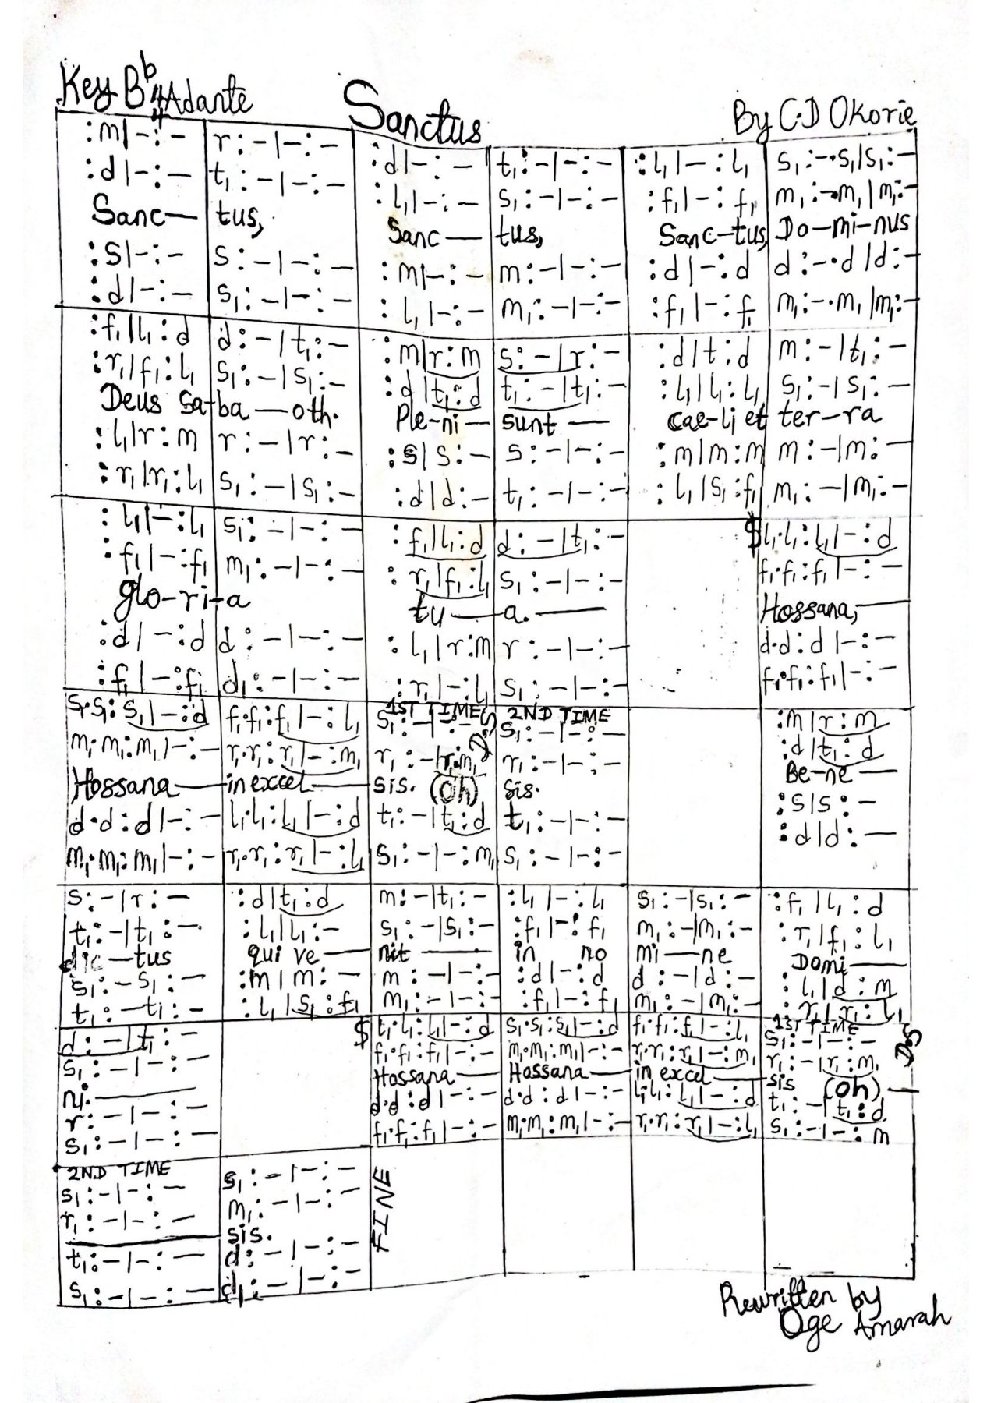 Key Bb 4/4 Adante
Sanctus
By C.D Okorie
:m|-:- r:-|-:- :d|-:- t₁:-|-:- :l₁|-:l₁ s₁:-.s₁|s₁:-
:d|-:- t₁:-|-:- :l₁|-:- s₁:-|-:- :f₁|-:f₁ m₁:-.m₁|m₁:-
Sanc— tus, Sanc— tus, Sanc-tus, Do-mi-nus
:s|-:- s:-|-:- :m|-:- m:-|-:- :d|-:d d:-.d|d:-
:d|-:- s₁:-|-:- :l₁|-:- m₁:-|-:- :f₁|-:f₁ m₁:-.m₁|m₁:-
:f₁|l₁:d d:-|t₁:- :m|r:m s:-|r:- :d|t:d m:-|t₁:-
:r₁|f₁:l₁ s₁:-|s₁:- :d|t₁:d t₁:-|t₁:- :l₁|l₁:l₁ s₁:-|s₁:-
Deus Sa-ba—oth. Ple-ni— sunt— cae-li et ter-ra
:l₁|r:m r:-|r:- :s|s:- s:-|-:- :m|m:m m:-|m:-
:r₁|r₁:l₁ s₁:-|s₁:- :d|d:- t₁:-|-:- :l₁|s₁:f₁ m₁:-|m₁:-
:l₁|-:l₁ s₁:-|-:- :f₁|l₁:d d:-|t₁:- $l₁.l₁:l₁|-:d
:f₁|-:f₁ m₁:-|-:- :r₁|f₁:l₁ s₁:-|-:- f₁.f₁:f₁|-:-
glo-ri-a tu—a.— Hossana,—
:d|-:d d:-|-:- :l₁|r:m r:-|-:- d.d:d|-:-
:f₁|-:f₁ d₁:-|-:- :r₁|-:l₁ s₁:-|-:- f₁.f₁:f₁|-:-
1ST TIME 2ND TIME
s₁.s₁:s₁|-:d f₁.f₁:f₁|-:l₁ s₁:-|-:- D.S s₁:-|-:- :m|r:m
m₁.m₁:m₁|-:- r₁.r₁:r₁|-:m₁ r₁:-|r₁:m₁ r₁:-|-:- :d|t₁:d
Hossana— in excel— sis. (oh) sis. Be-ne—
d.d:d|-:- l₁.l₁:l₁|-:d t₁:-|t₁:d t₁:-|-:- :s|s:-
m₁.m₁:m₁|-:- r₁.r₁:r₁|-:l₁ s₁:-|-:m₁ s₁:-|-:- :d|d:—
s:-|r:- :d|t₁:d m:-|t₁:- :l₁|-:l₁ s₁:-|s₁:- :f₁|l₁:d
t₁:-|t₁:- :l₁|l₁:- s₁:-|s₁:- :f₁|-:f₁ m₁:-|m₁:- :r₁|f₁:l₁
dic—tus qui ve— nit— in no mi—ne Domi—
s:-s₁:- :m|m:- m:-|-:- :d|-:d d:-|d:- :l₁|d:m
t₁:-t₁:- :l₁|s₁:f₁ m₁:-|-:- :f₁|-:f₁ m₁:-|m₁:- :r₁|r₁:l₁
1ST TIME
d:-|t₁:- $t₁.l₁:l₁|-:d s₁.s₁:s₁|-:d f₁.f₁:f₁|-:l₁ s₁:-|-:- D.S
s₁:-|-:- f₁.f₁:f₁|-:- m₁.m₁:m₁|-:- r₁.r₁:r₁|-:m₁ r₁:-|r:m₁
ni.— Hossana— Hossana— in excel— sis (oh)—
r:-|-:- d.d:d|-:- d.d:d|-:- l₁.l₁:l₁|-:d t₁:-|t₁:d
s₁:-|-:- f₁.f₁:f₁|-:- m₁.m₁:m₁|-:- r₁.r₁:r₁|-:l₁ s₁:-|-:m
2ND TIME
s₁:-|-:- s₁:-|-:-
r₁:-|-:- m₁:-|-:-
sis.
t₁:-|-:- d:-|-:-
s₁:-|-:- d₁:-|-:-
FINE
Rewritten by
Oge Amarah